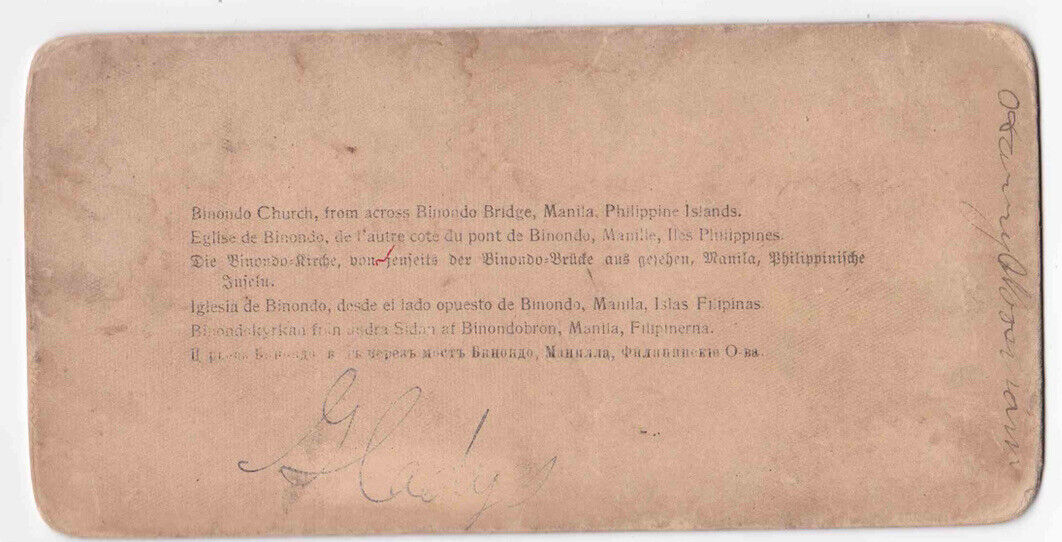 Binondo Church, from across Binondo Bridge, Manila, Philippine Islands.
Eglise de Binondo, de l'autre cote du pont de Binondo, Manille, Iles Philippines.
Die Binondo-Kirche, von jenseits der Binondo-Brücke aus gesehen, Manila, Philippinische
Inseln.
Iglesia de Binondo, desde el lado opuesto de Binondo, Manila, Islas Filipinas.
Binondokyrkan från andra Sidan af Binondobron, Manila, Filipinerna.
Бинондо черезъ мостъ Бинондо, Манилла, Филипинскіе О-ва.
Gladys